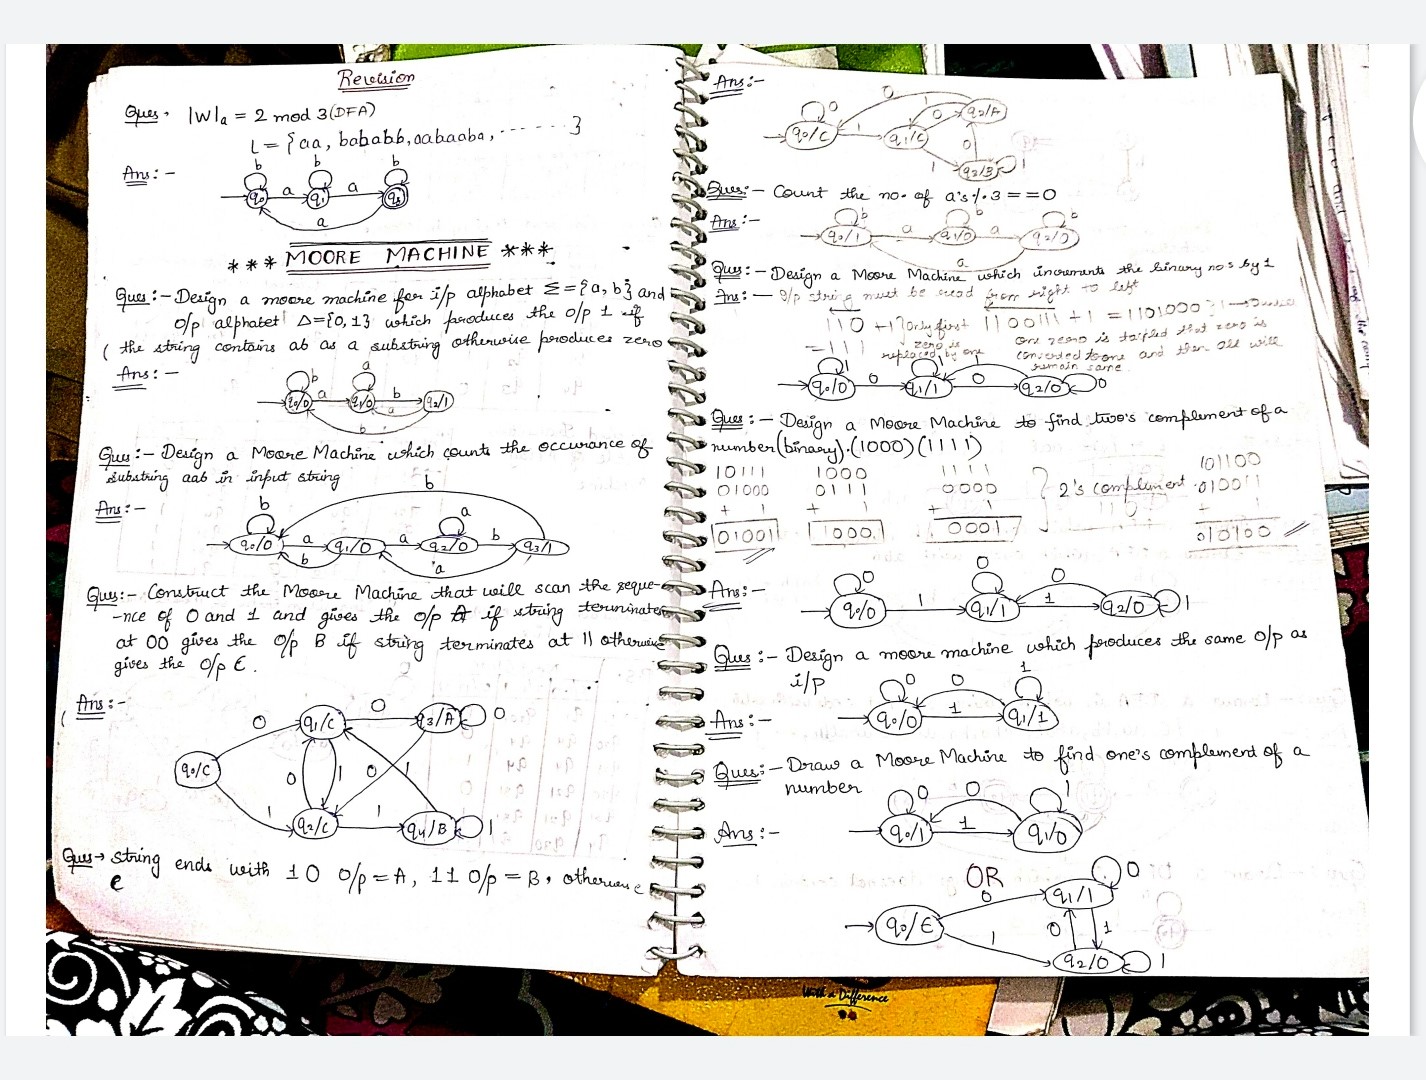 Revision
Ques. |W|a = 2 mod 3 (DFA)
L = {aa, bababb, aabaaba, ....... }
Ans:-
b b b
q0 a q1 a q2
a
*** MOORE MACHINE ***
Ques:- Design a moore machine for i/p alphabet Σ={a, b} and
o/p alphabet Δ={0,1} which produces the o/p 1 if
the string contains ab as a substring otherwise produces zero
Ans:-
b a
q0/0 a q1/0 b q2/1
a
b
Ques:- Design a Moore Machine which counts the occurance of
substring aab in input string
Ans:-
b
b a
q0/0 a q1/0 a q2/0 b q3/1
b a
Ques:- Construct the Moore Machine that will scan the seque-
-nce of 0 and 1 and gives the o/p A if string terminates
at 00 gives the o/p B if string terminates at 11 otherwise
gives the o/p C.
Ans:-
0 q1/C 0 q3/A 0
q0/C 0 1 0 1
1 q2/C 1 q4/B 1
Ques→ string ends with 10 o/p = A, 11 o/p = B, otherwise
C
Ans:-
0
0 1 0 q2/A
q0/C 1 q1/C
1 0
q2/B 1
Ques:- Count the no. of a's % 3 == 0
Ans:-
b b b
q0/1 a q1/0 a q2/0
a
Ques:- Design a Moore Machine which increments the binary no's by 1
Ans:- I/p string must be read from right to left
110 +1 } only first 1100111 + 1 = 1101000
= 111 zero is
replaced by one
one zero is
converted to one and then all will
remain same.
1 1 1
q0/0 0 q1/1 0 q2/0 0
Ques:- Design a Moore Machine to find two's complement of a
number(binary).(1000)(1111)
10111 1000 1111 101100
01000 0111 0000 } 2's complement 010011
+ 1 + 1 + 1 + 1
01001 1000 0001 010100
Ans:-
0 0 0
q0/0 1 q1/1 1 q2/0 1
Ques:- Design a moore machine which produces the same o/p as
i/p
Ans:-
0 0 1
q0/0 1 q1/1
Ques:- Draw a Moore Machine to find one's complement of a
number
Ans:-
0 0 1
q0/1 1 q1/0
OR
0 q1/1 0
q0/E 0 1
1 q2/0 1
With a Difference